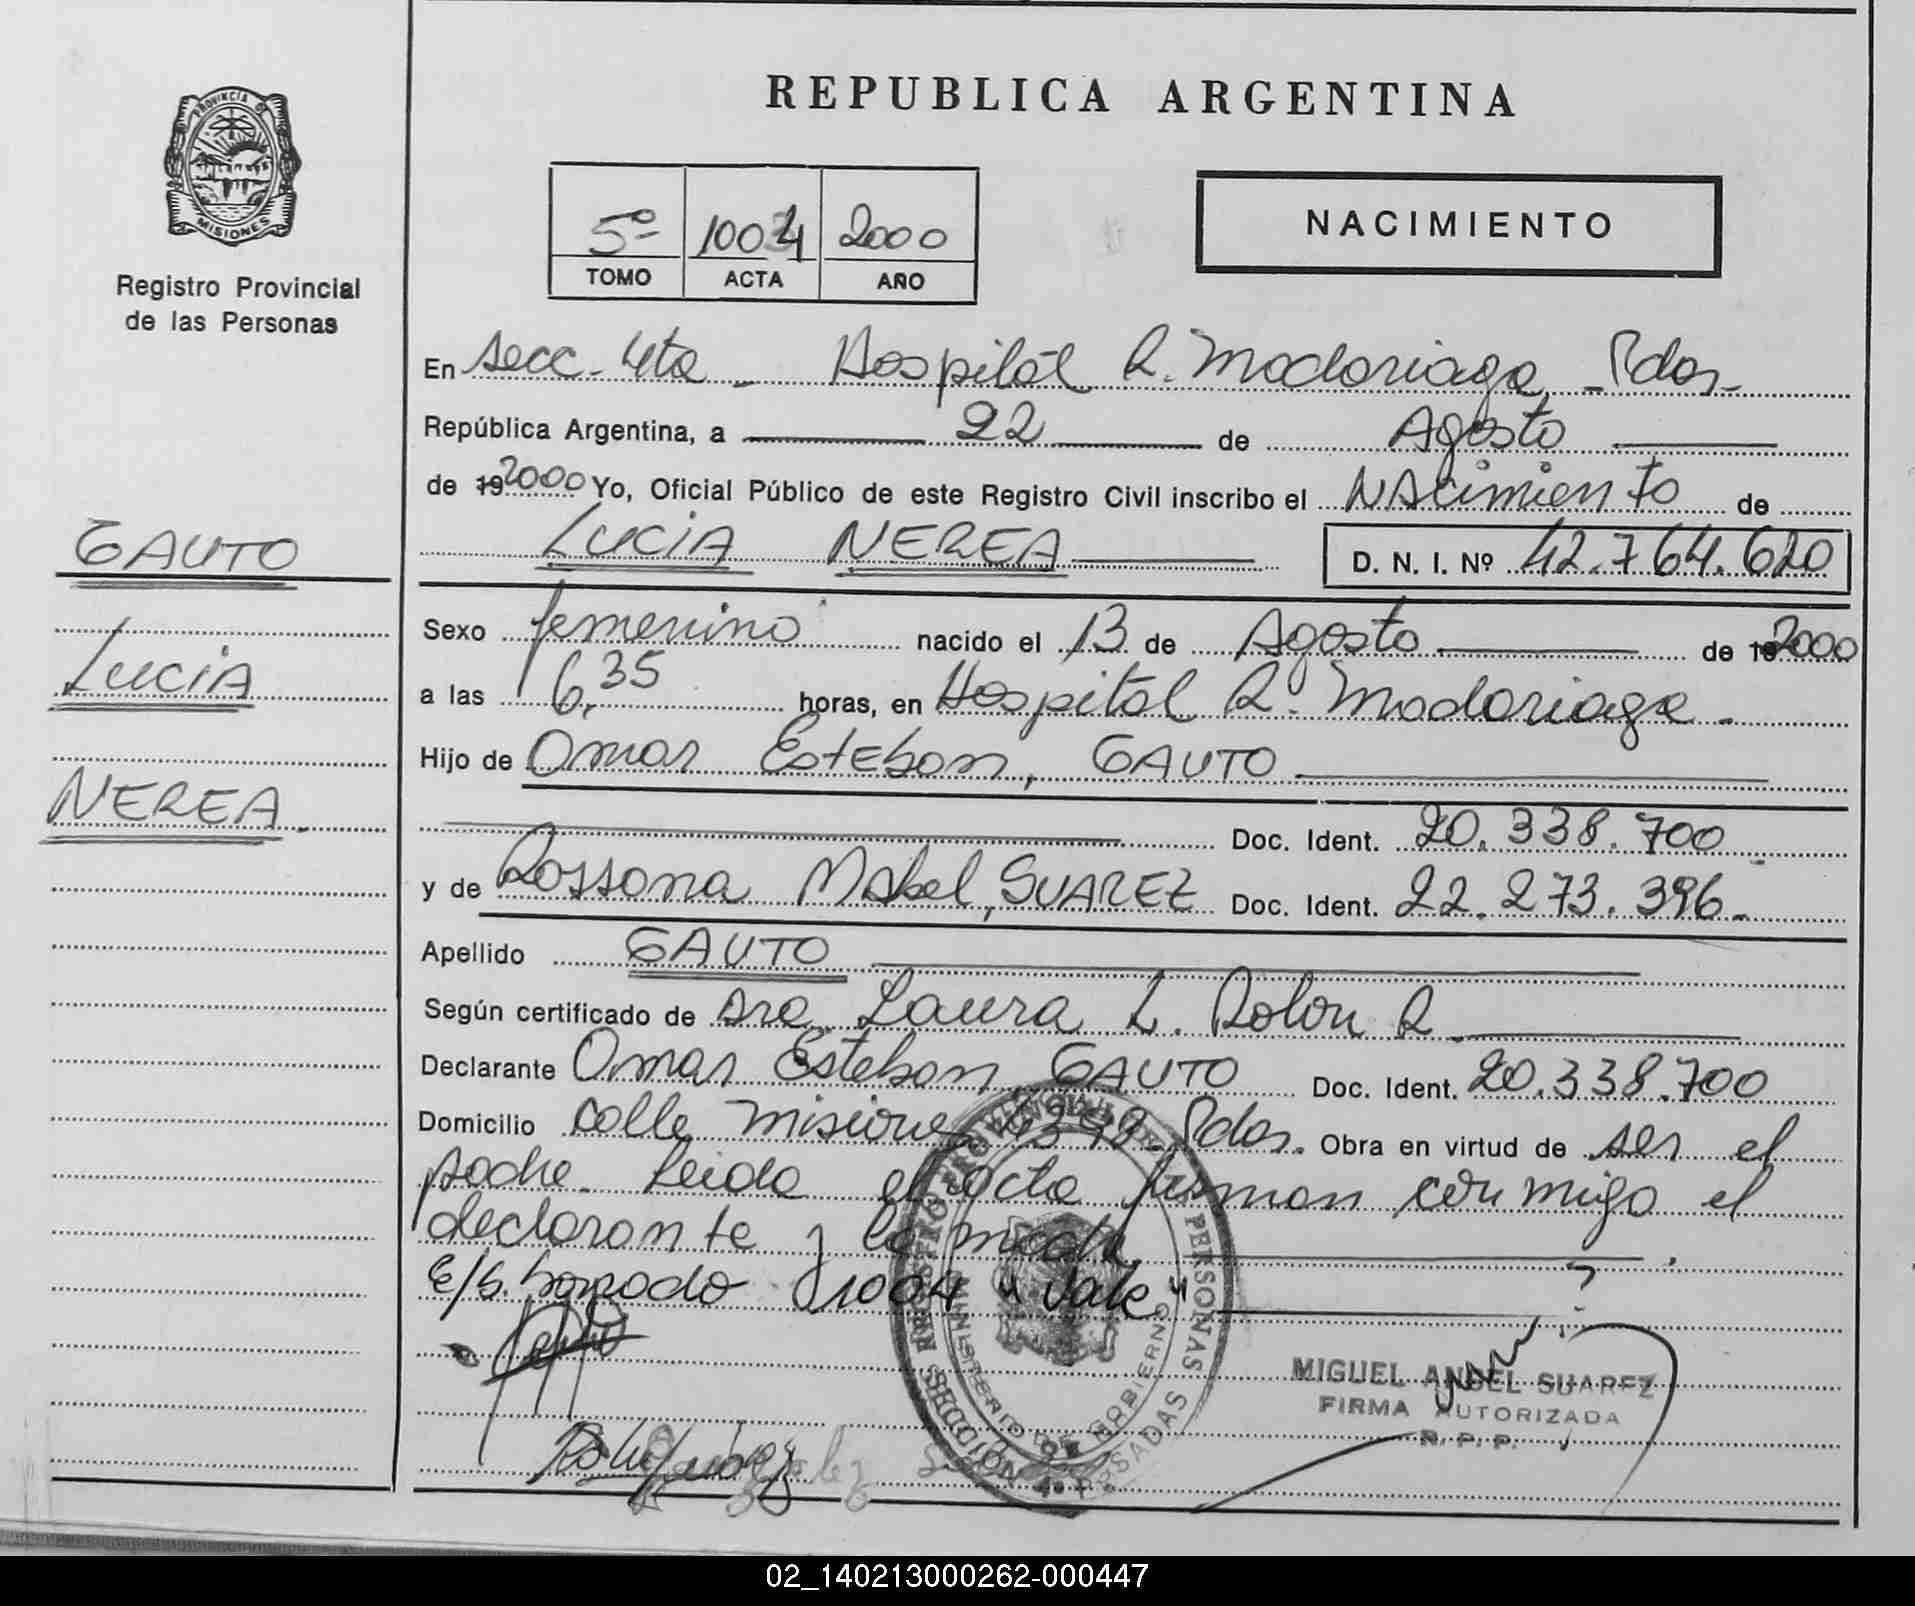 REPUBLICA ARGENTINA
PROVINCIA DE
MISIONES
Registro Provincial
de las Personas
5º 1004 2000
TOMO ACTA AÑO
NACIMIENTO
En secc. 4ta - Hospital R. Madariaga - Pdas.-
República Argentina, a 22 de Agosto
de 192000 Yo, Oficial Público de este Registro Civil inscribo el NAcimiento de
LUCIA NEREA D. N. I. Nº 42.764.620
GAUTO
LUCIA
NEREA.
Sexo femenino nacido el 13 de Agosto de 192000
a las 6,35 horas, en Hospital R. Madariaga.
Hijo de Omar Esteban, GAUTO
Doc. Ident. 20.338.700
y de Rossana Mabel, SUAREZ Doc. Ident. 22.273.396.
Apellido GAUTO
Según certificado de Dra Laura L. Rolon R.
Declarante Omar Esteban GAUTO Doc. Ident. 20.338.700
Domicilio calle Misiones 4398 Pdas. Obra en virtud de ser el
padre. Leida el acta firman conmigo el
declarante y la madre.
E/S. borrado 1004 "Vale"
REGISTRO PROVINCIAL DE LAS PERSONAS
MINISTERIO DE GOBIERNO
SECCION 4ta
POSADAS
MIGUEL ANGEL SUAREZ
FIRMA AUTORIZADA
R. P. P.
02_140213000262-000447